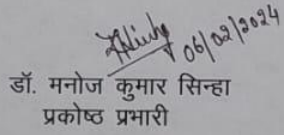 06/02/2024
डॉ. मनोज कुमार सिन्हा
प्रकोष्ठ प्रभारी